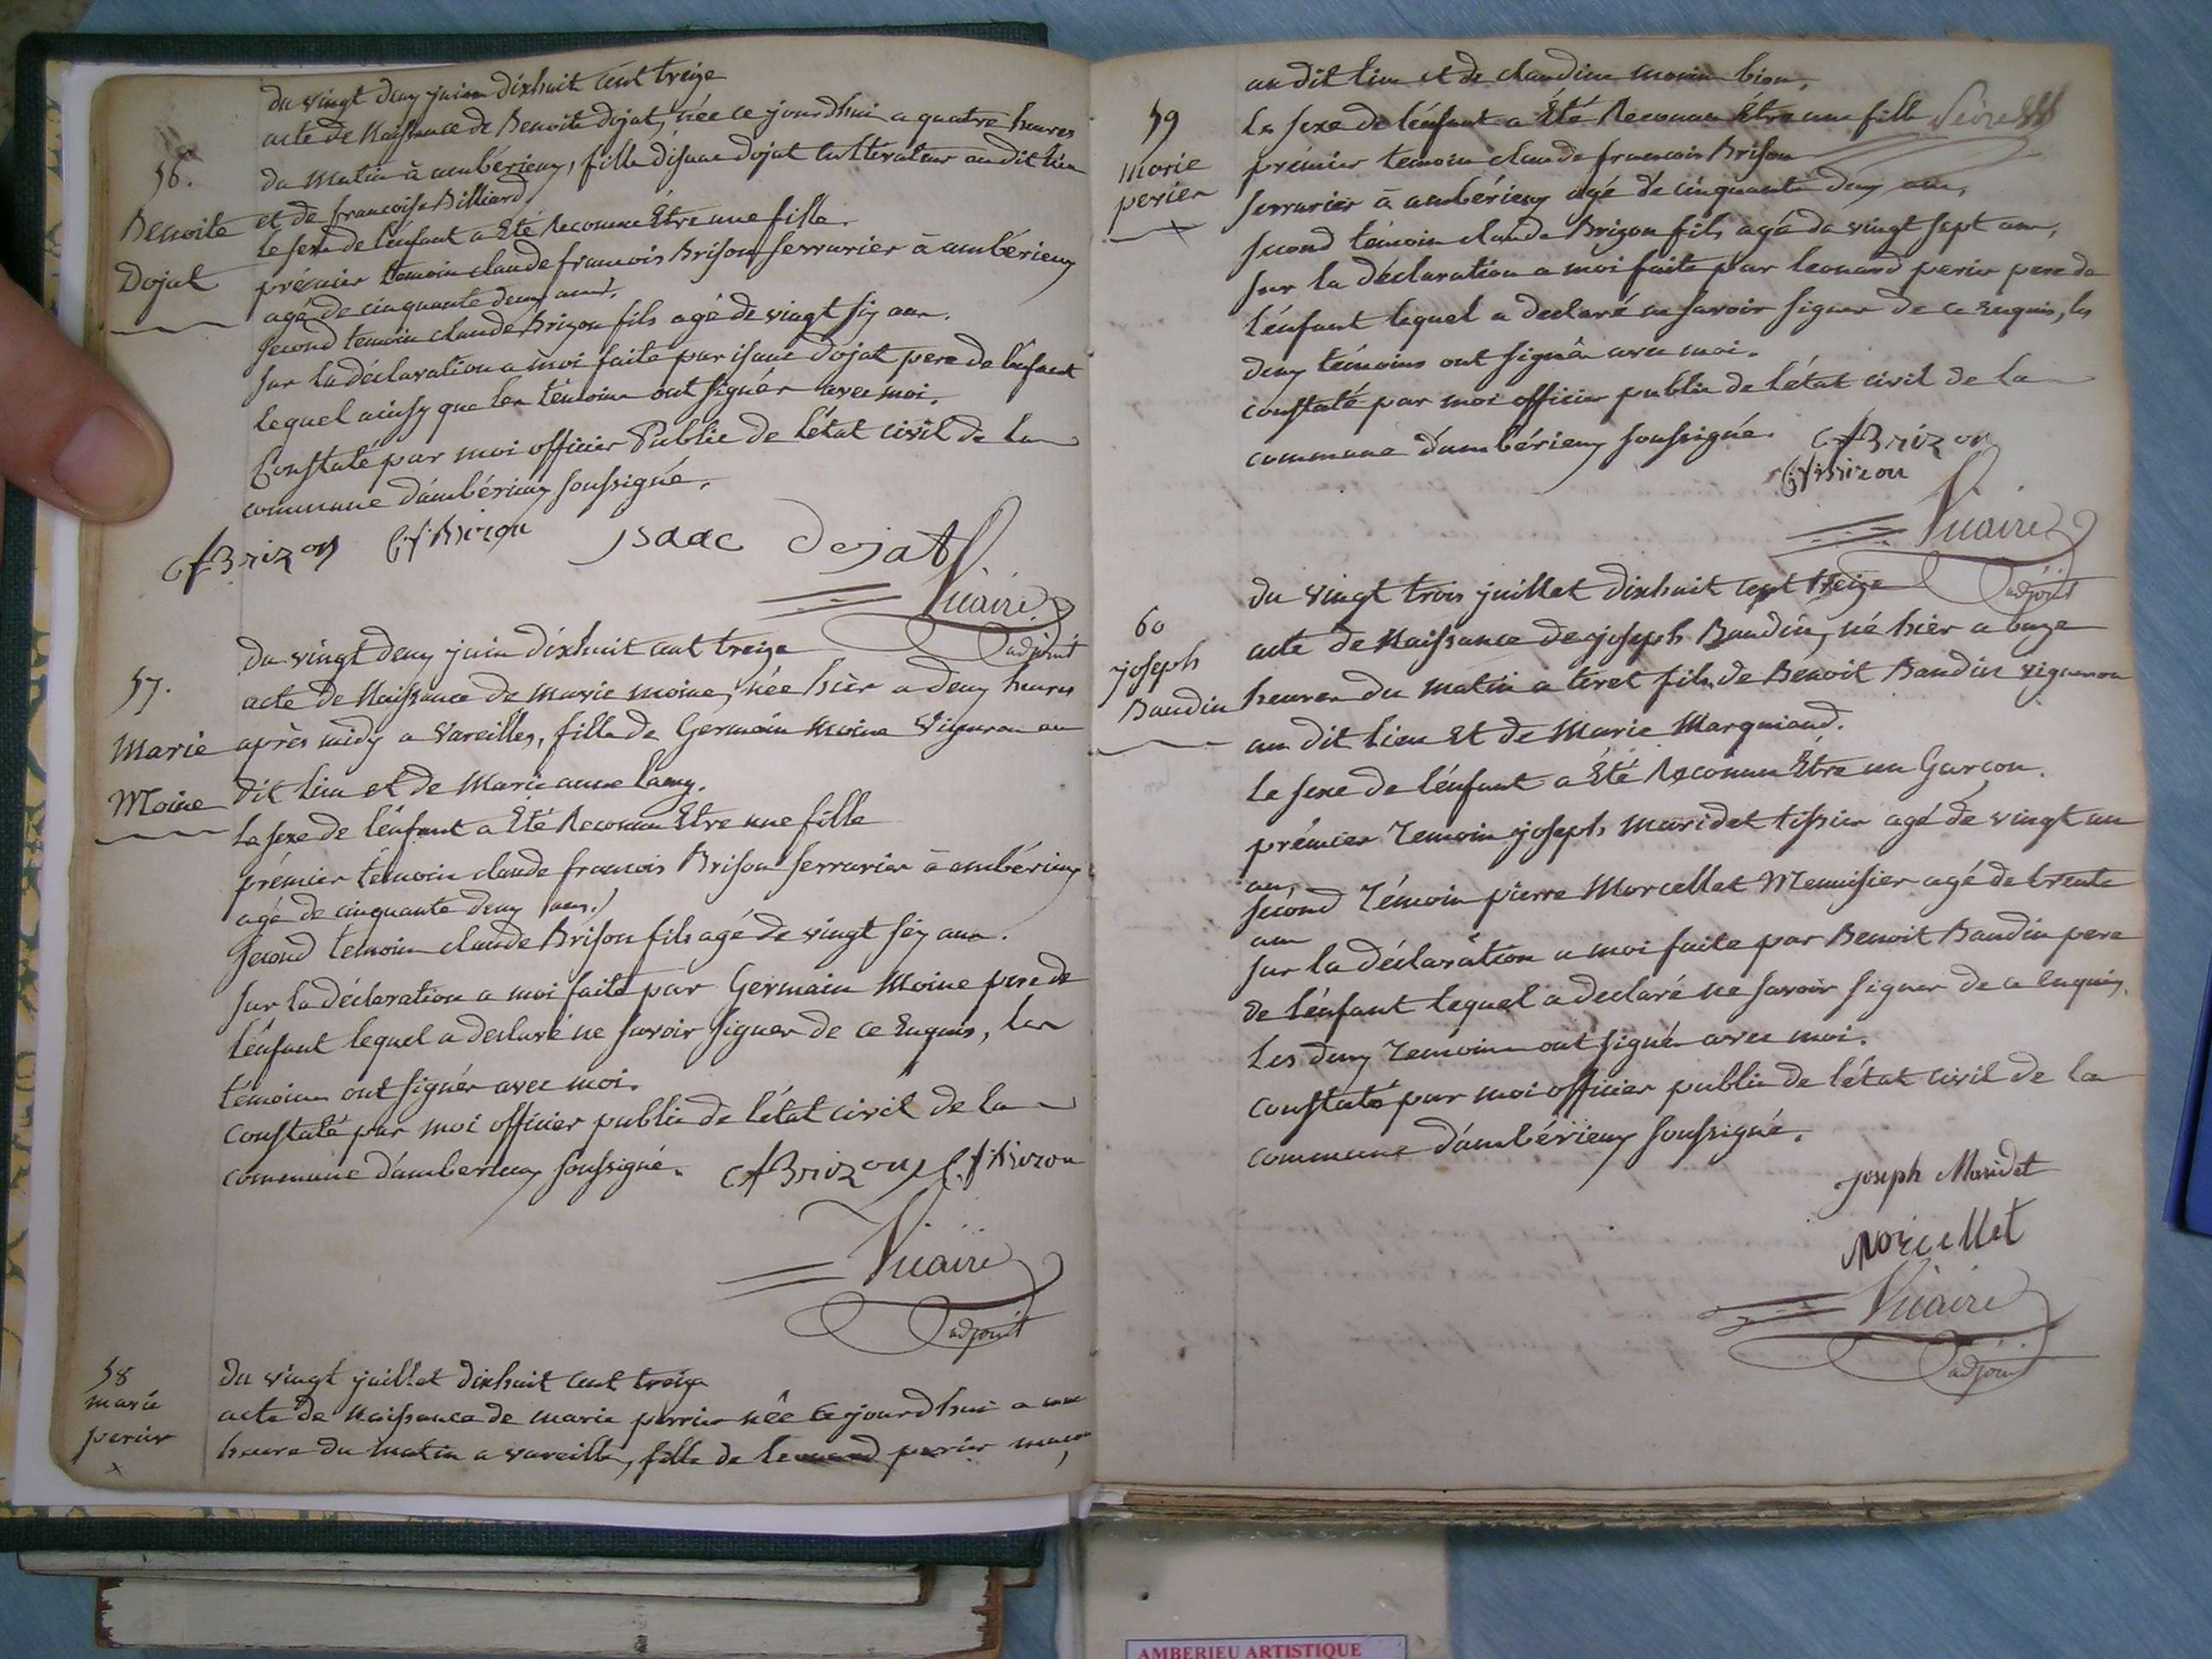 du vingt deux juin dixhuit cent treize
56.
Benoite
Dojat
acte de Naissance de Benoite dojat, née ce jourdhui a quatre heures
du matin à ambérieux, fille d'isaac dojat cultivateur au dit lieu
et de francoise Billiard.
le sexe de lénfant a Eté Reconnu Etre une fille.
prémier temoin claude francois Brison serrurier à ambérieux
agé de cinquante deux ans.
second temoin claude Brizon fils agé de vingt six ans.
sur la déclaration a moi faite par isaac dojat pere de lénfant
lequel ainsy que les témoins ont signés avec moi.
Constaté par moi officier Public de létat civil de la
commune d'ambérieux soussigné.
cfBrizon cfBrizon isaac Dojat
Vicaire
adjoint
57.
Marie
Moine
du vingt deux juin dixhuit cent treize
acte de Naissance de marie moine, née hier a deux heures
après midy a Vareilles, fille de Germain moine Vigneron au
dit lieu et de Marie anne lamy.
Le sexe de lénfant a Eté Reconnu Etre une fille
prémier témoin claude francois Brison serrurier à ambérieux
agé de cinquante deux ans.
second temoin claude Brison fils agé de vingt six ans.
sur la déclaration a moi faite par Germain Moine pere de
lénfant lequel a declaré ne savoir signer de ce Enquis, les
témoins ont signés avec moi.
constaté par moi officier public de létat civil de la
commune d'amberieux soussigné. cfBrizon cfBrizon
Vicaire
adjoint
58
marie
perier
x
du vingt juillet dixhuit cent treize
acte de Naissance de marie perrier née ce jourdhui a une
heure du matin a vareilles, fille de leonard perier macon
59
marie
perier
x
au dit lieu et de claudine monin bion.
Le sexe de lénfant a Été Reconnu Etre une fille
prémier temoin claude francois Brison
serrurier à ambérieux agé de cinquante deux ans,
second témoin claude Brizon fils agé de vingt sept ans,
sur la déclaration a moi faite par leonard perier pere de
lénfant lequel a declaré ne savoir signer de ce enquis, les
deux témoins ont signés avec moi.
constaté par moi officier public de létat civil de la
commune d'ambérieux soussigné. cfBrizon
cfBrizon
Vicaire
adjoint
60
joseph
Baudin
du vingt trois juillet dixhuit cent treize
acte de Naissance de joseph Baudin, né hier a onze
heures du matin a tiret fils de Benoit Baudin vigneron
au dit lieu Et de Marie Marquiand.
Le sexe de lénfant a Eté Reconnu Etre un Garçon.
prémier Temoin joseph maridet tissier agé de vingt un
ans,
second Témoin pierre Morcellet Menuisier agé de trente
ans
sur la déclaration a moi faite par Benoit Baudin pere
de lénfant lequel a declaré ne savoir signer de ce enquis,
les deux Temoins ont signés avec moi.
constaté par moi officier public de létat civil de la
commune d'ambérieux soussigné.
joseph Maridet
Morcellet
Vicaire
adjoint
AMBERIEU ARTISTIQUE